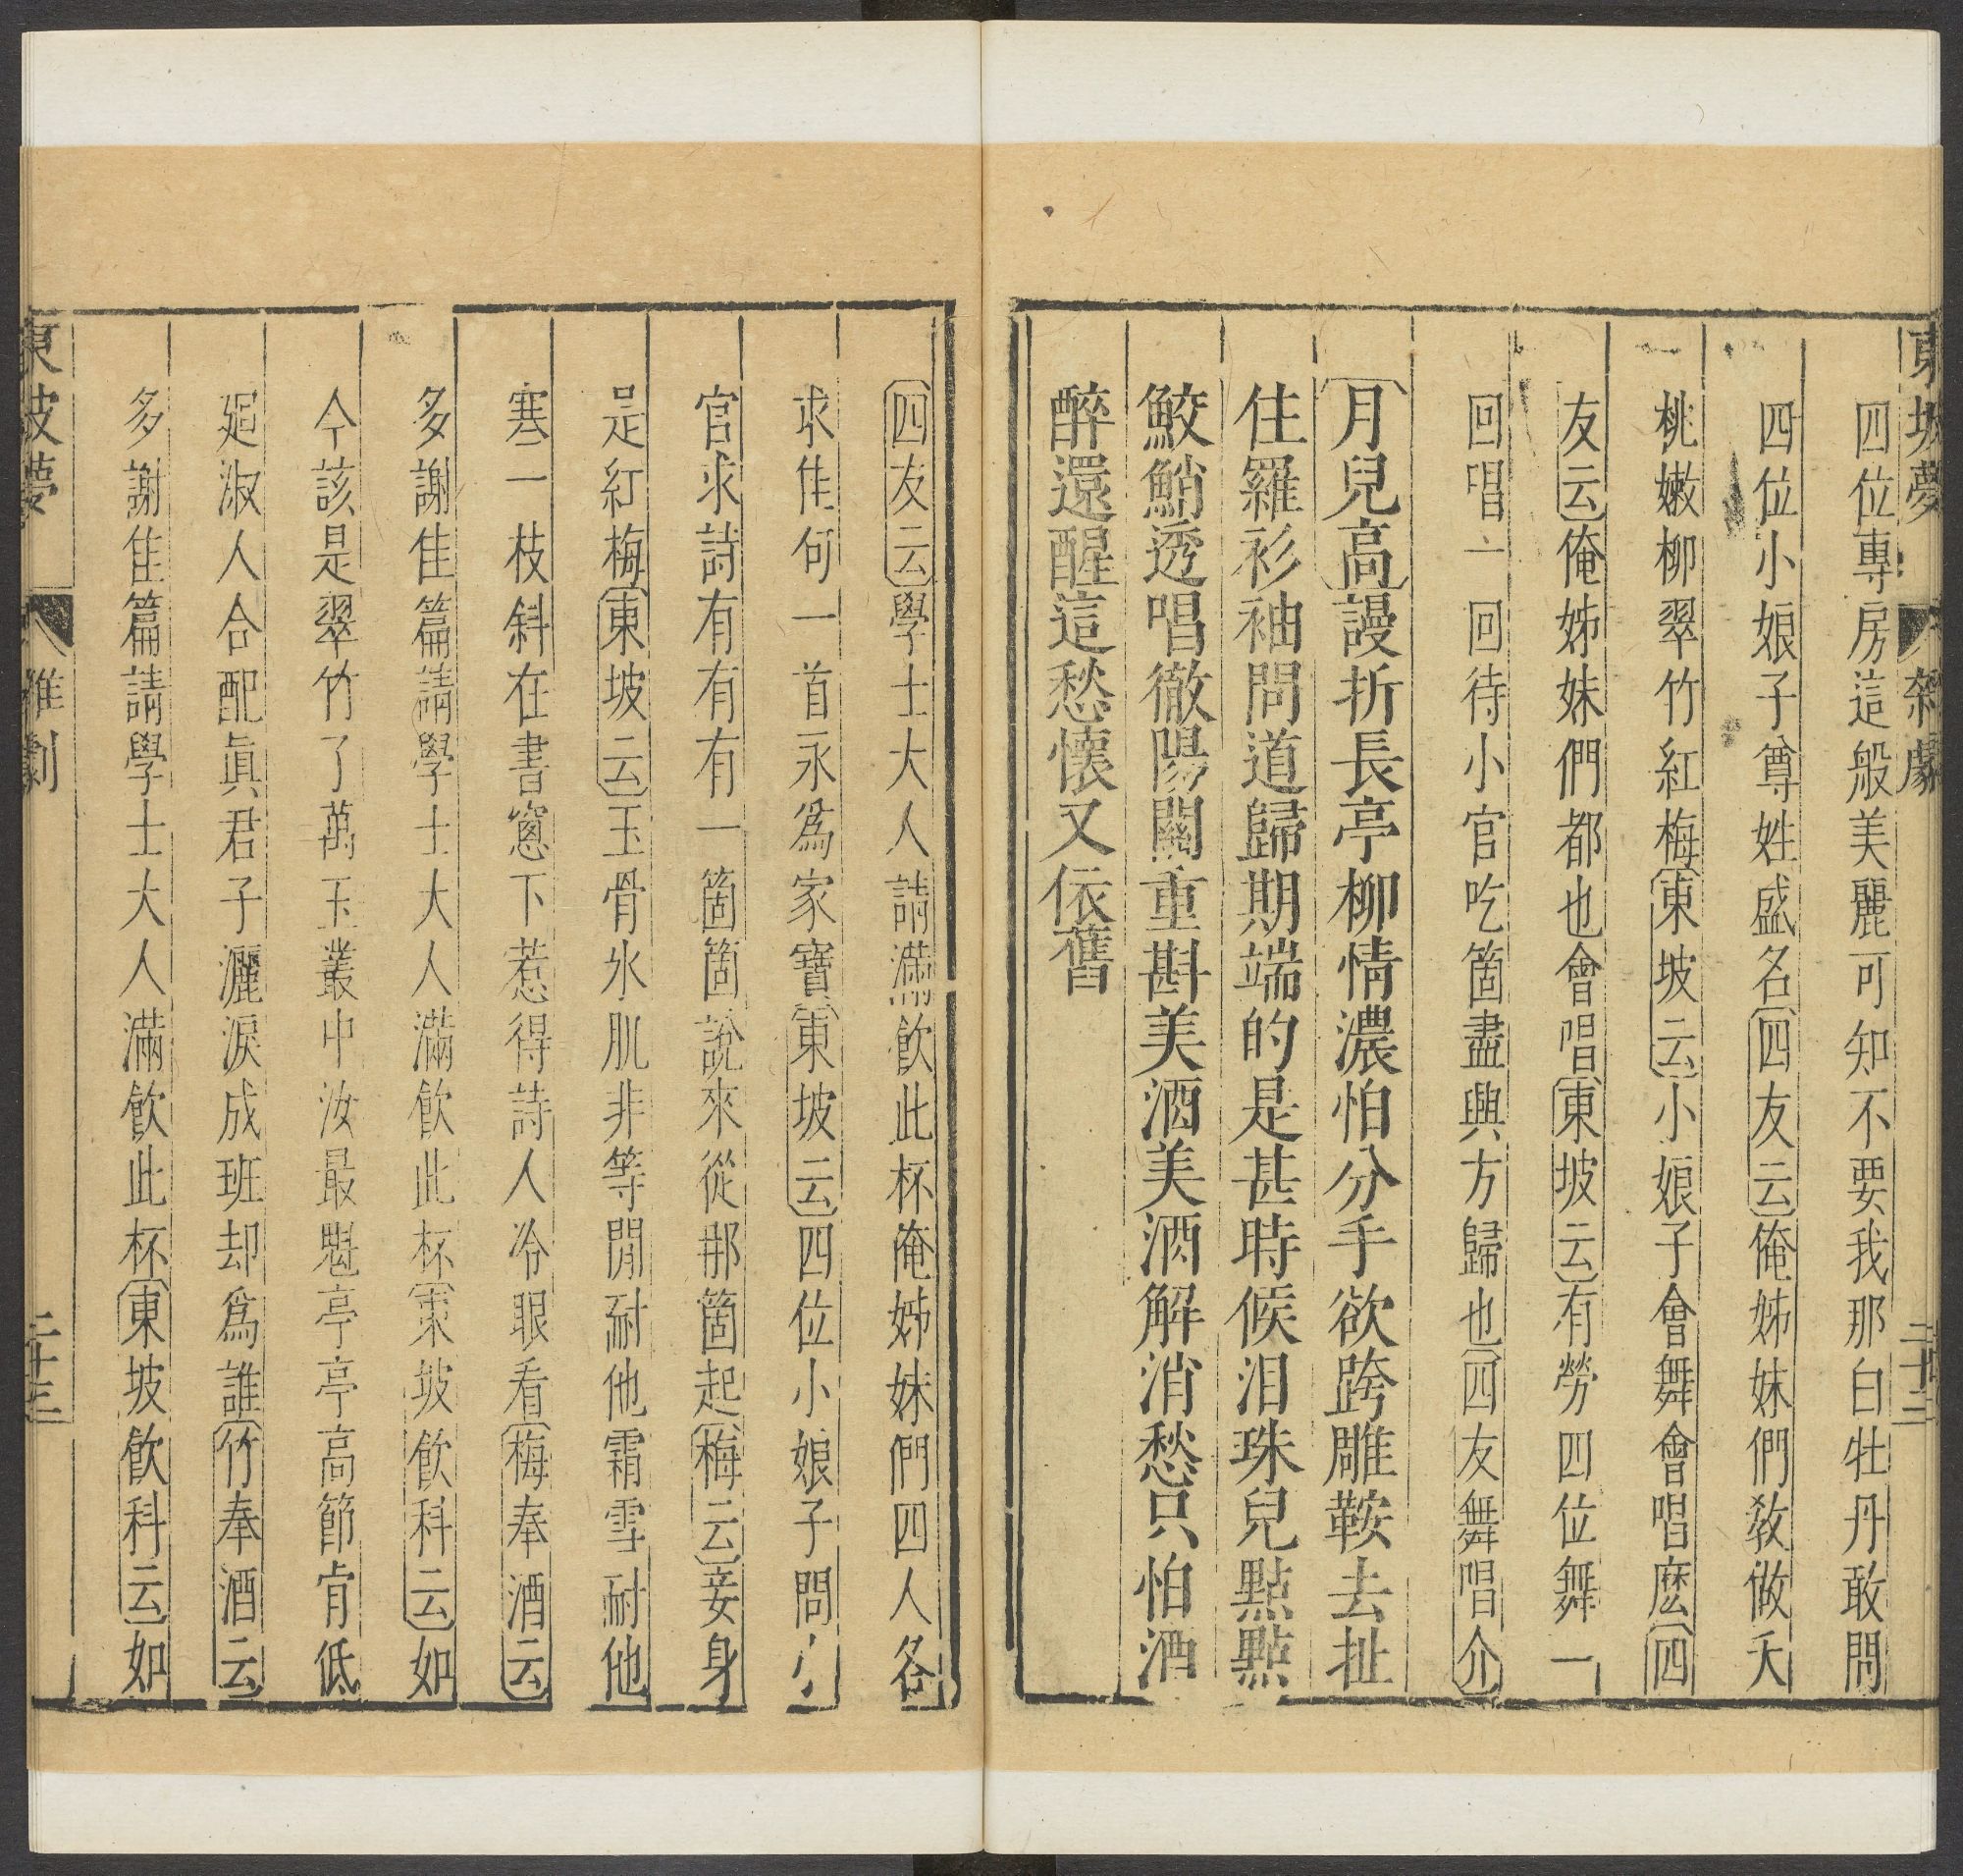 東坡夢 雜劇 二十二
四位專房這般美麗可知不要我那白牡丹敢問
四位小娘子尊姓盛名四友云俺姊妹們敎做夭
桃嫩柳翠竹紅梅東坡云小娘子會舞會唱麽四
友云俺姊妹們都也會唱東坡云有勞四位舞一
回唱一回待小官吃箇盡興方歸也四友舞唱介
月兒高謾折長亭柳情濃怕分手欲跨雕鞍去扯
住羅衫袖問道歸期端的是甚時候泪珠兒點點
鮫鮹透唱徹陽關重斟美酒美酒解消愁只怕酒
醉還醒這愁懷又依舊
四友云學士大人請滿飲此杯俺姊妹們四人各
求佳句一首永爲家寶東坡云四位小娘子問小
官求詩有有有一箇箇說來從那箇起梅云妾身
是紅梅東坡云玉骨氷肌非等閒耐他霜雪耐他
寒一枝斜在書窻下惹得詩人冷眼看梅奉酒云
多謝佳篇請學士大人滿飲此杯東坡飲科云如
今該是翠竹了萬玉叢中汝最魁亭亭亭高節肯低
廻淑人合配眞君子灑淚成班却爲誰竹奉酒云
多謝佳篇請學士大人滿飲此杯東坡飲科云如
東坡夢 雜劇 二十三